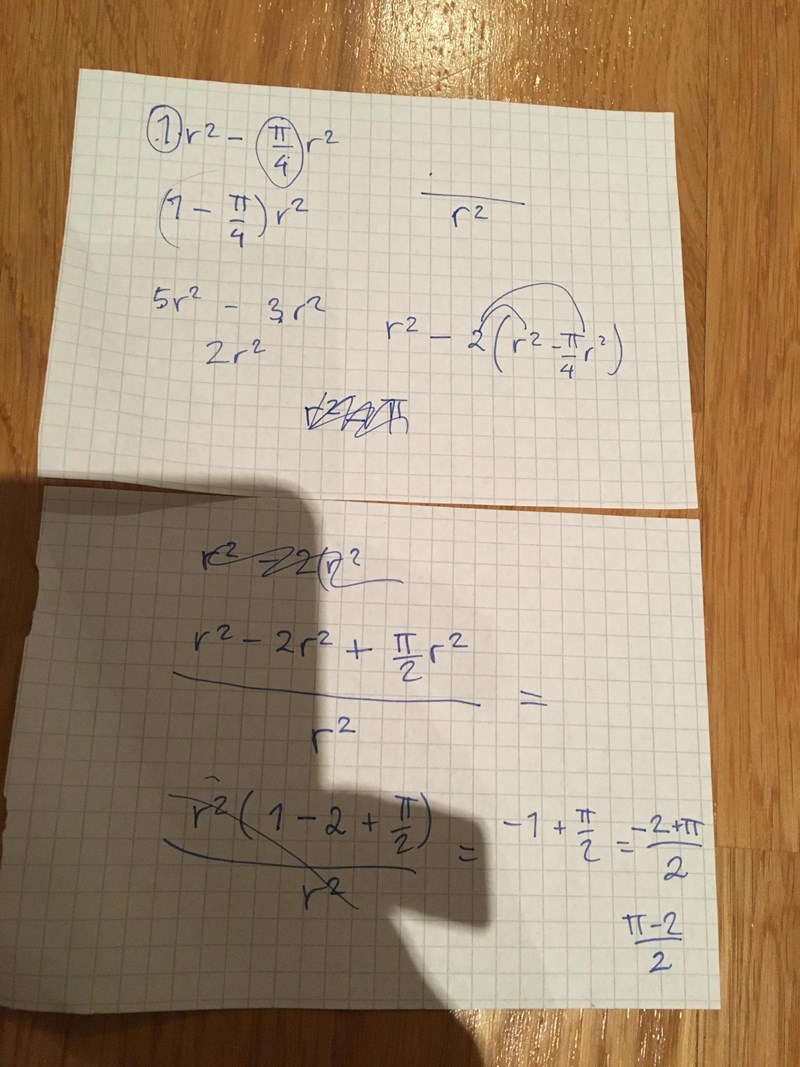 1r² - π/4 r²
(1 - π/4) r²
/r²
5r² - 3r²
2r²
r² - 2(r² - π/4 r²)
r² - 2(r²
(r² - 2r² + π/2 r²)/r² =
r²(1 - 2 + π/2)/r² = -1 + π/2 = (-2+π)/2
(π-2)/2